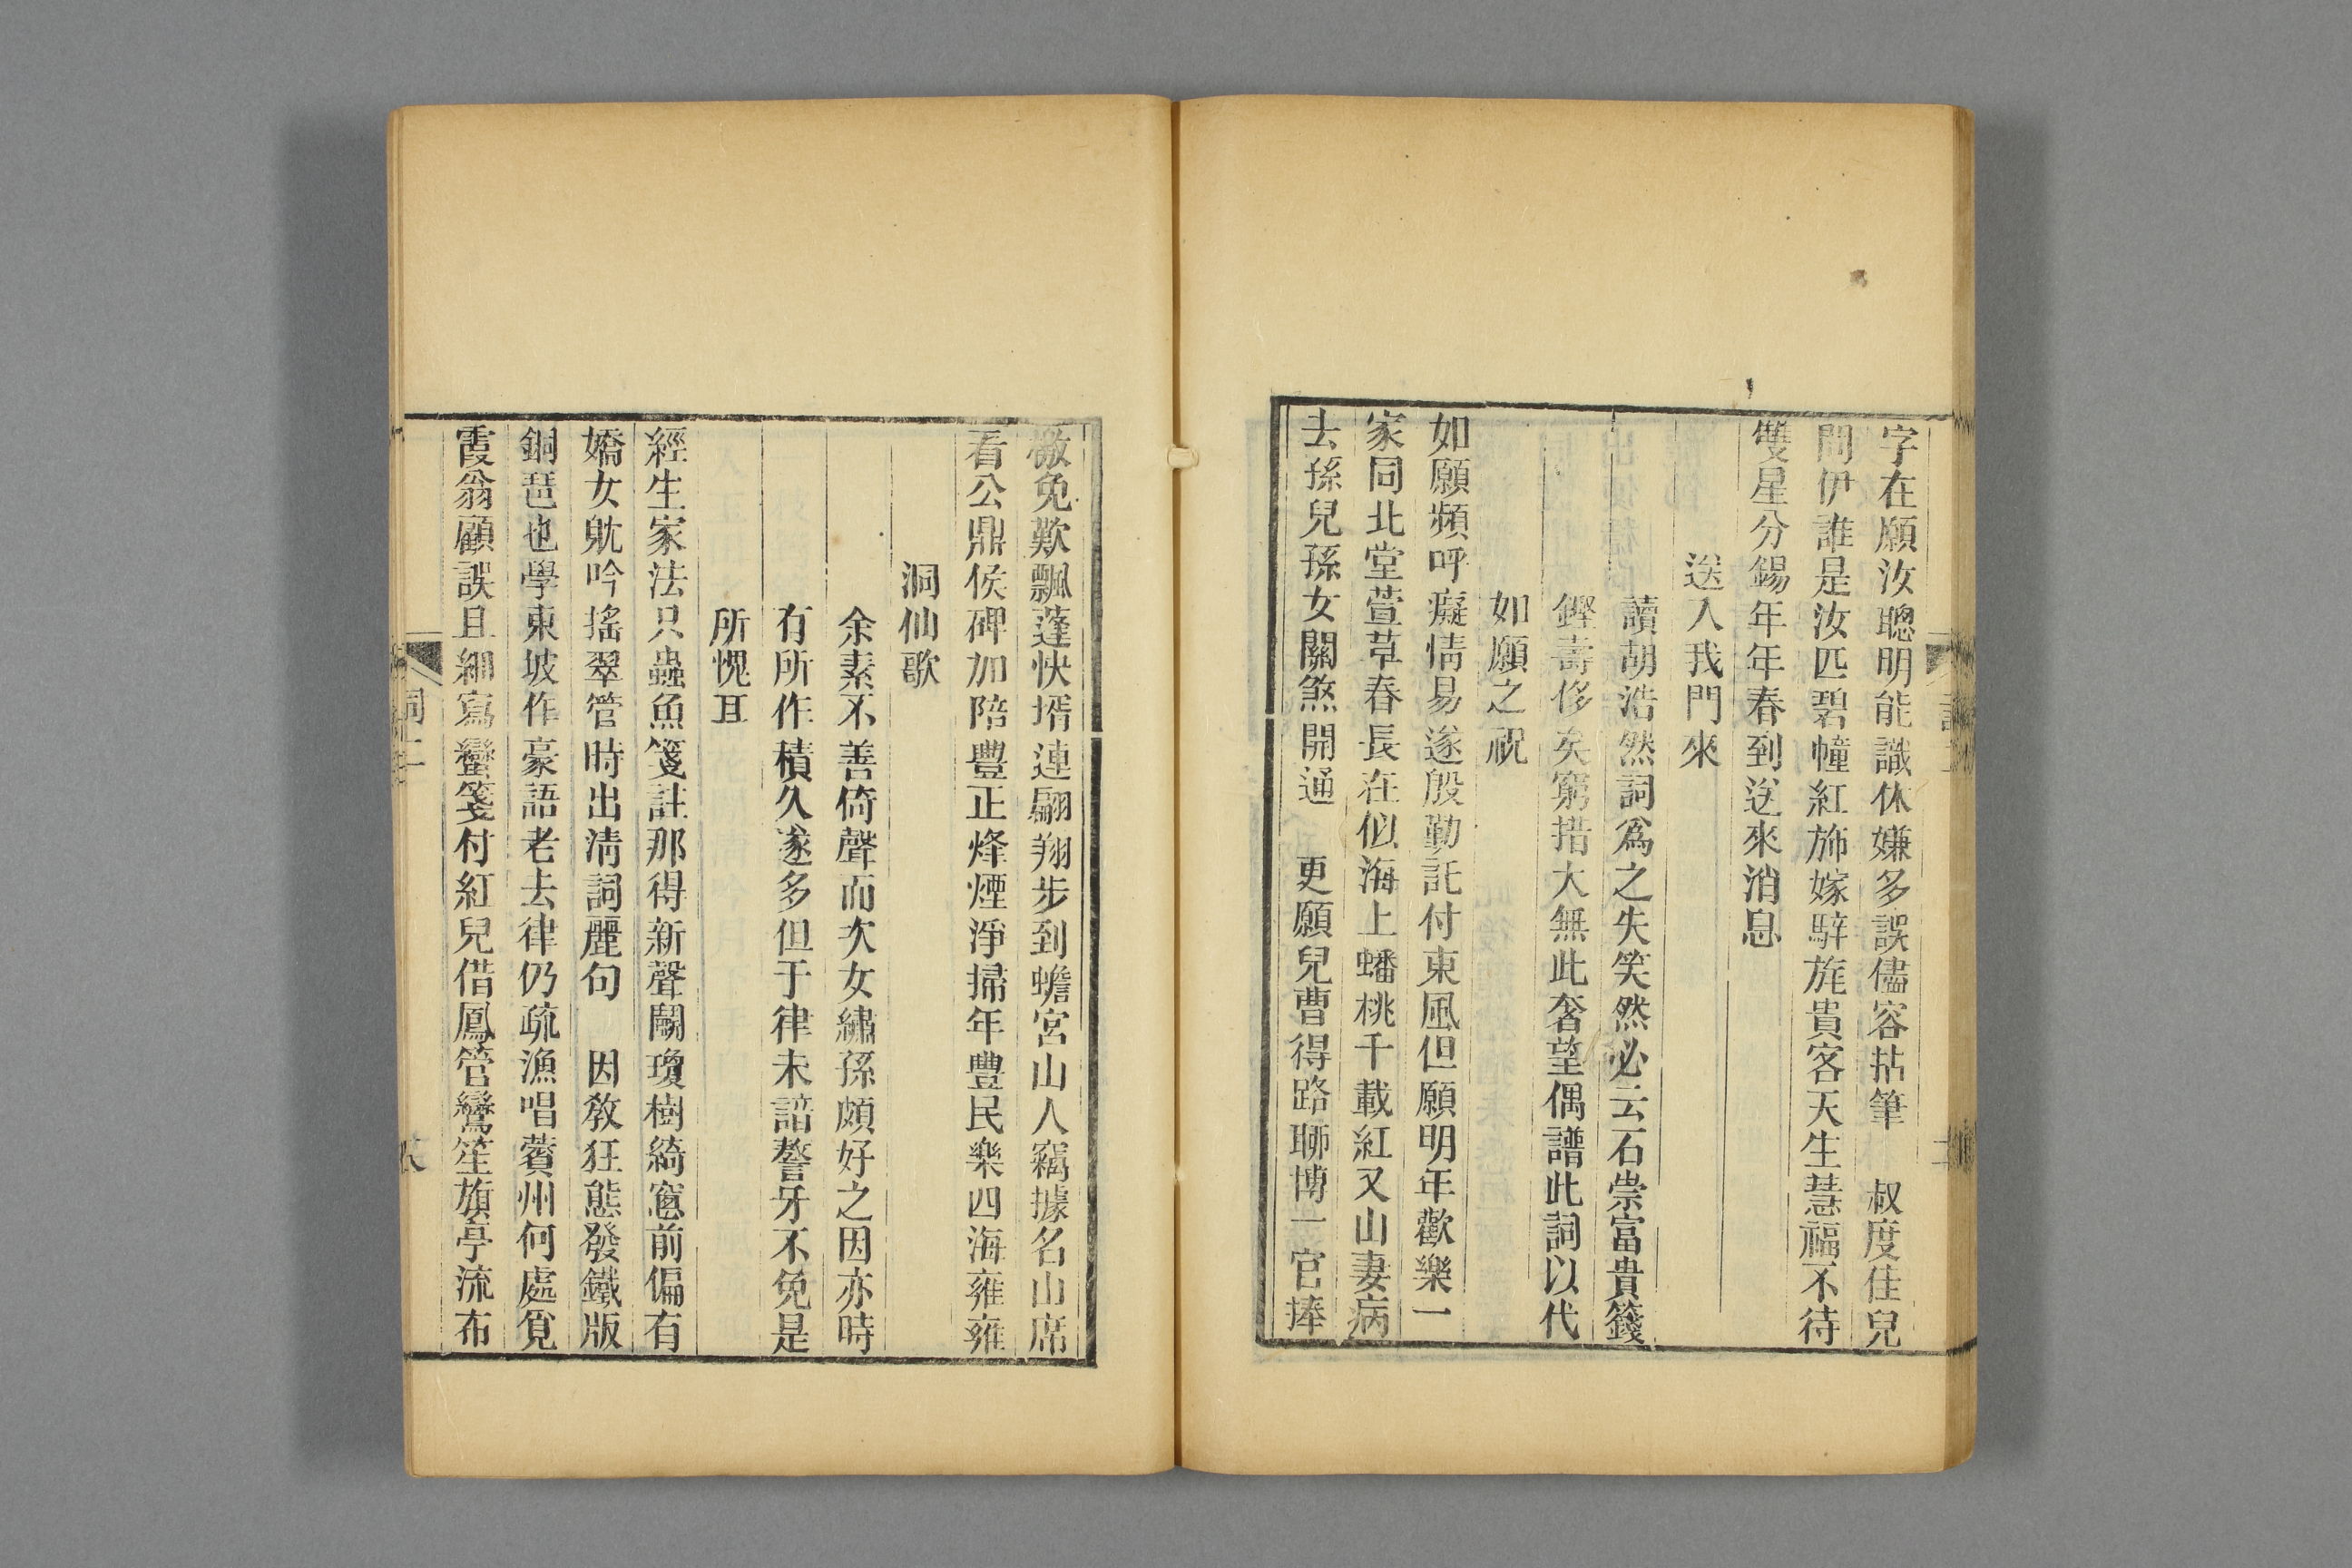 字在願汝聰明能識休嫌多誤儘容拈筆　叔度佳兒
問伊誰是汝匹碧幢紅斾嫁騂旄貴客天生慧福不待
雙星分錫年年春到送來消息
送入我門來
讀胡浩然詞爲之失笑然必云石崇富貴籛
鏗壽侈矣窮措大無此奢望偶譜此詞以代
如願之祝
如願頻呼癡情易遂殷勤託付東風但願明年歡樂一
家同北堂萱草春長在似海上蟠桃千載紅又山妻病
去孫兒孫女關煞開通　更願兒曹得路聊博一官捧
檄免歎飄蓬快壻連翩翔步到蟾宮山人竊據名山席
看公鼎侯碑加陪豐正烽煙淨掃年豐民樂四海雍雍
洞仙歌
余素不善倚聲而次女繡孫頗好之因亦時
有所作積久遂多但于律未諳謷牙不免是
所愧耳
經生家法只蟲魚箋註那得新聲鬭瓊樹綺窻前偏有
嬌女躭吟搖翠管時出清詞麗句　因教狂態發鐵版
銅琶也學東坡作豪語老去律仍疏漁唱薲州何處覓
霞翁顧誤且細寫蠻箋付紅兒借鳳管鸞笙旗亭流布
詞二